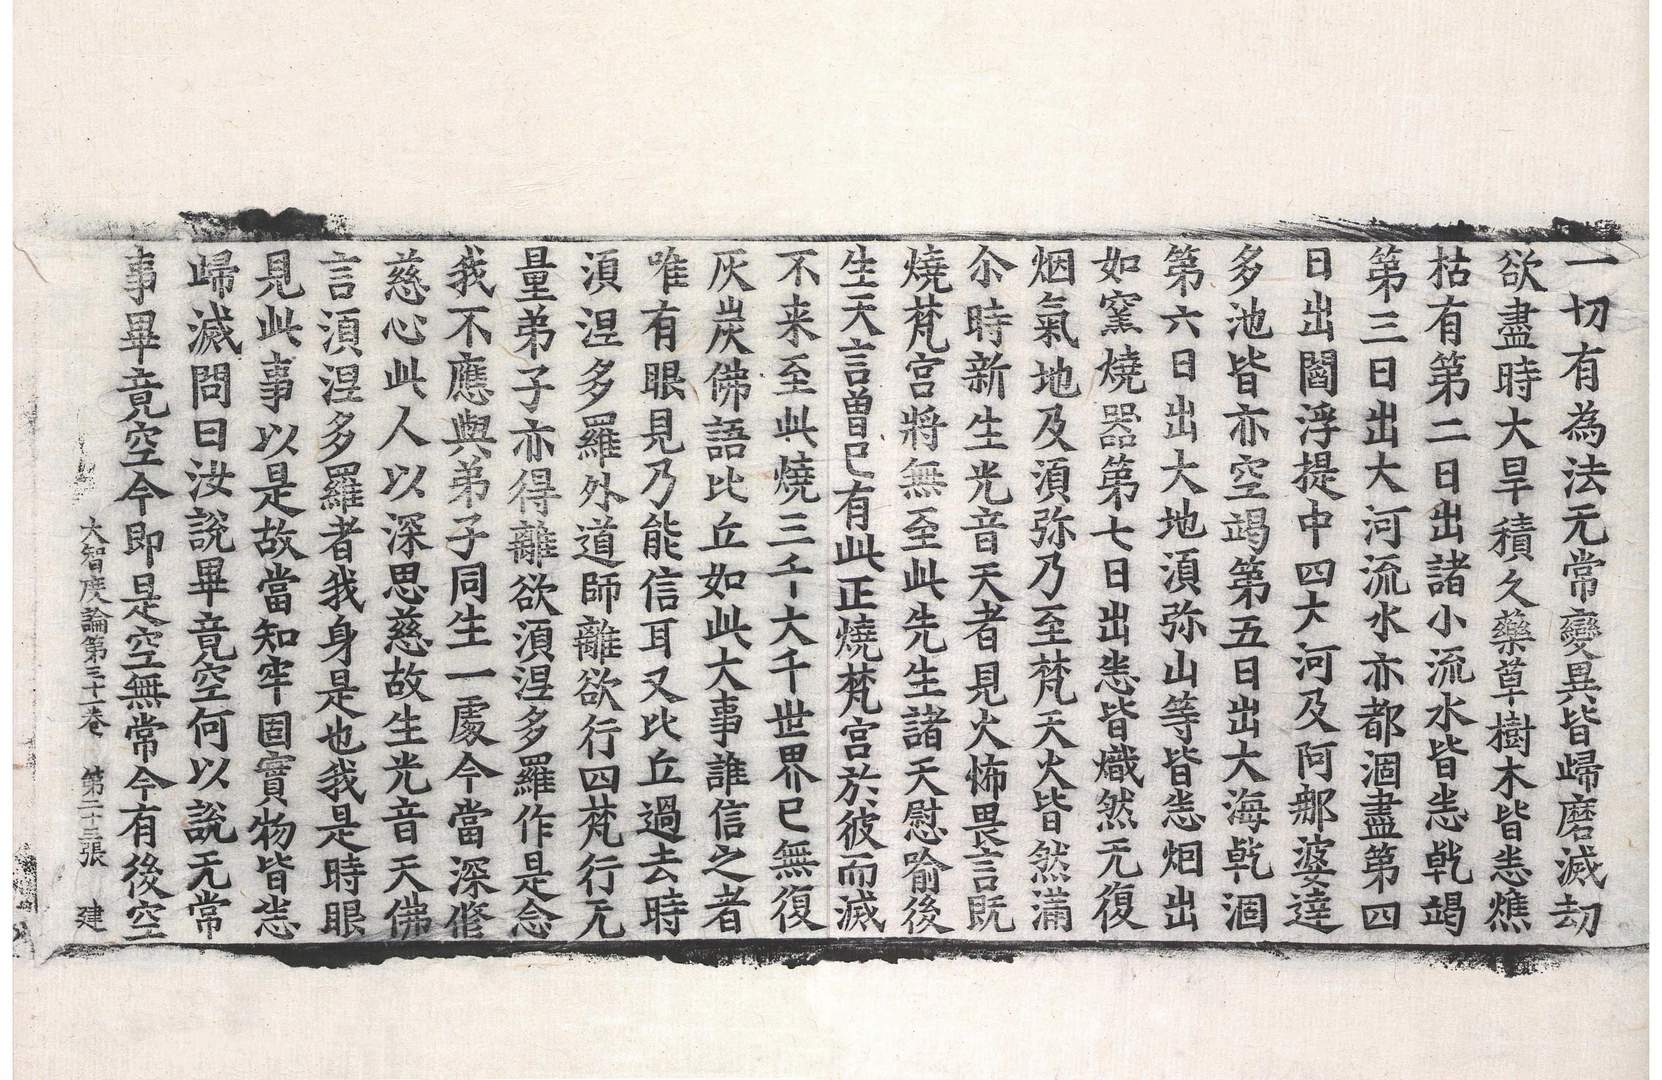 一切有為法无常變異皆歸磨滅劫
欲盡時大旱積久藥草樹木皆悉燋
枯有第二日出諸小流水皆悉乹竭
第三日出大河流水亦都涸盡第四
日出閻浮提中四大河及阿那婆達
多池皆亦空竭第五日出大海乹涸
第六日出大地湏弥山等皆悉烟出
如窯燒器第七日出悉皆熾然无復
烟氣地及湏弥乃至梵天火皆然滿
尒時新生光音天者見火怖畏言既
燒梵宮將無至此先生諸天慰喻後
生天言曽已有此正燒梵宮於彼而滅
不来至此燒三千大千世界已無復
灰炭佛語比丘如此大事誰信之者
唯有眼見乃能信耳又比丘過去時
湏涅多羅外道師離欲行四梵行无
量弟子亦得離欲湏涅多羅作是念
我不應與弟子同生一處今當深修
慈心此人以深思慈故生光音天佛
言湏涅多羅者我身是也我是時眼
見此事以是故當知牢固實物皆悉
歸滅問曰汝說畢竟空何以說无常
事畢竟空今即是空無常今有後空
大智度論第三十一巻　第二十三張　建